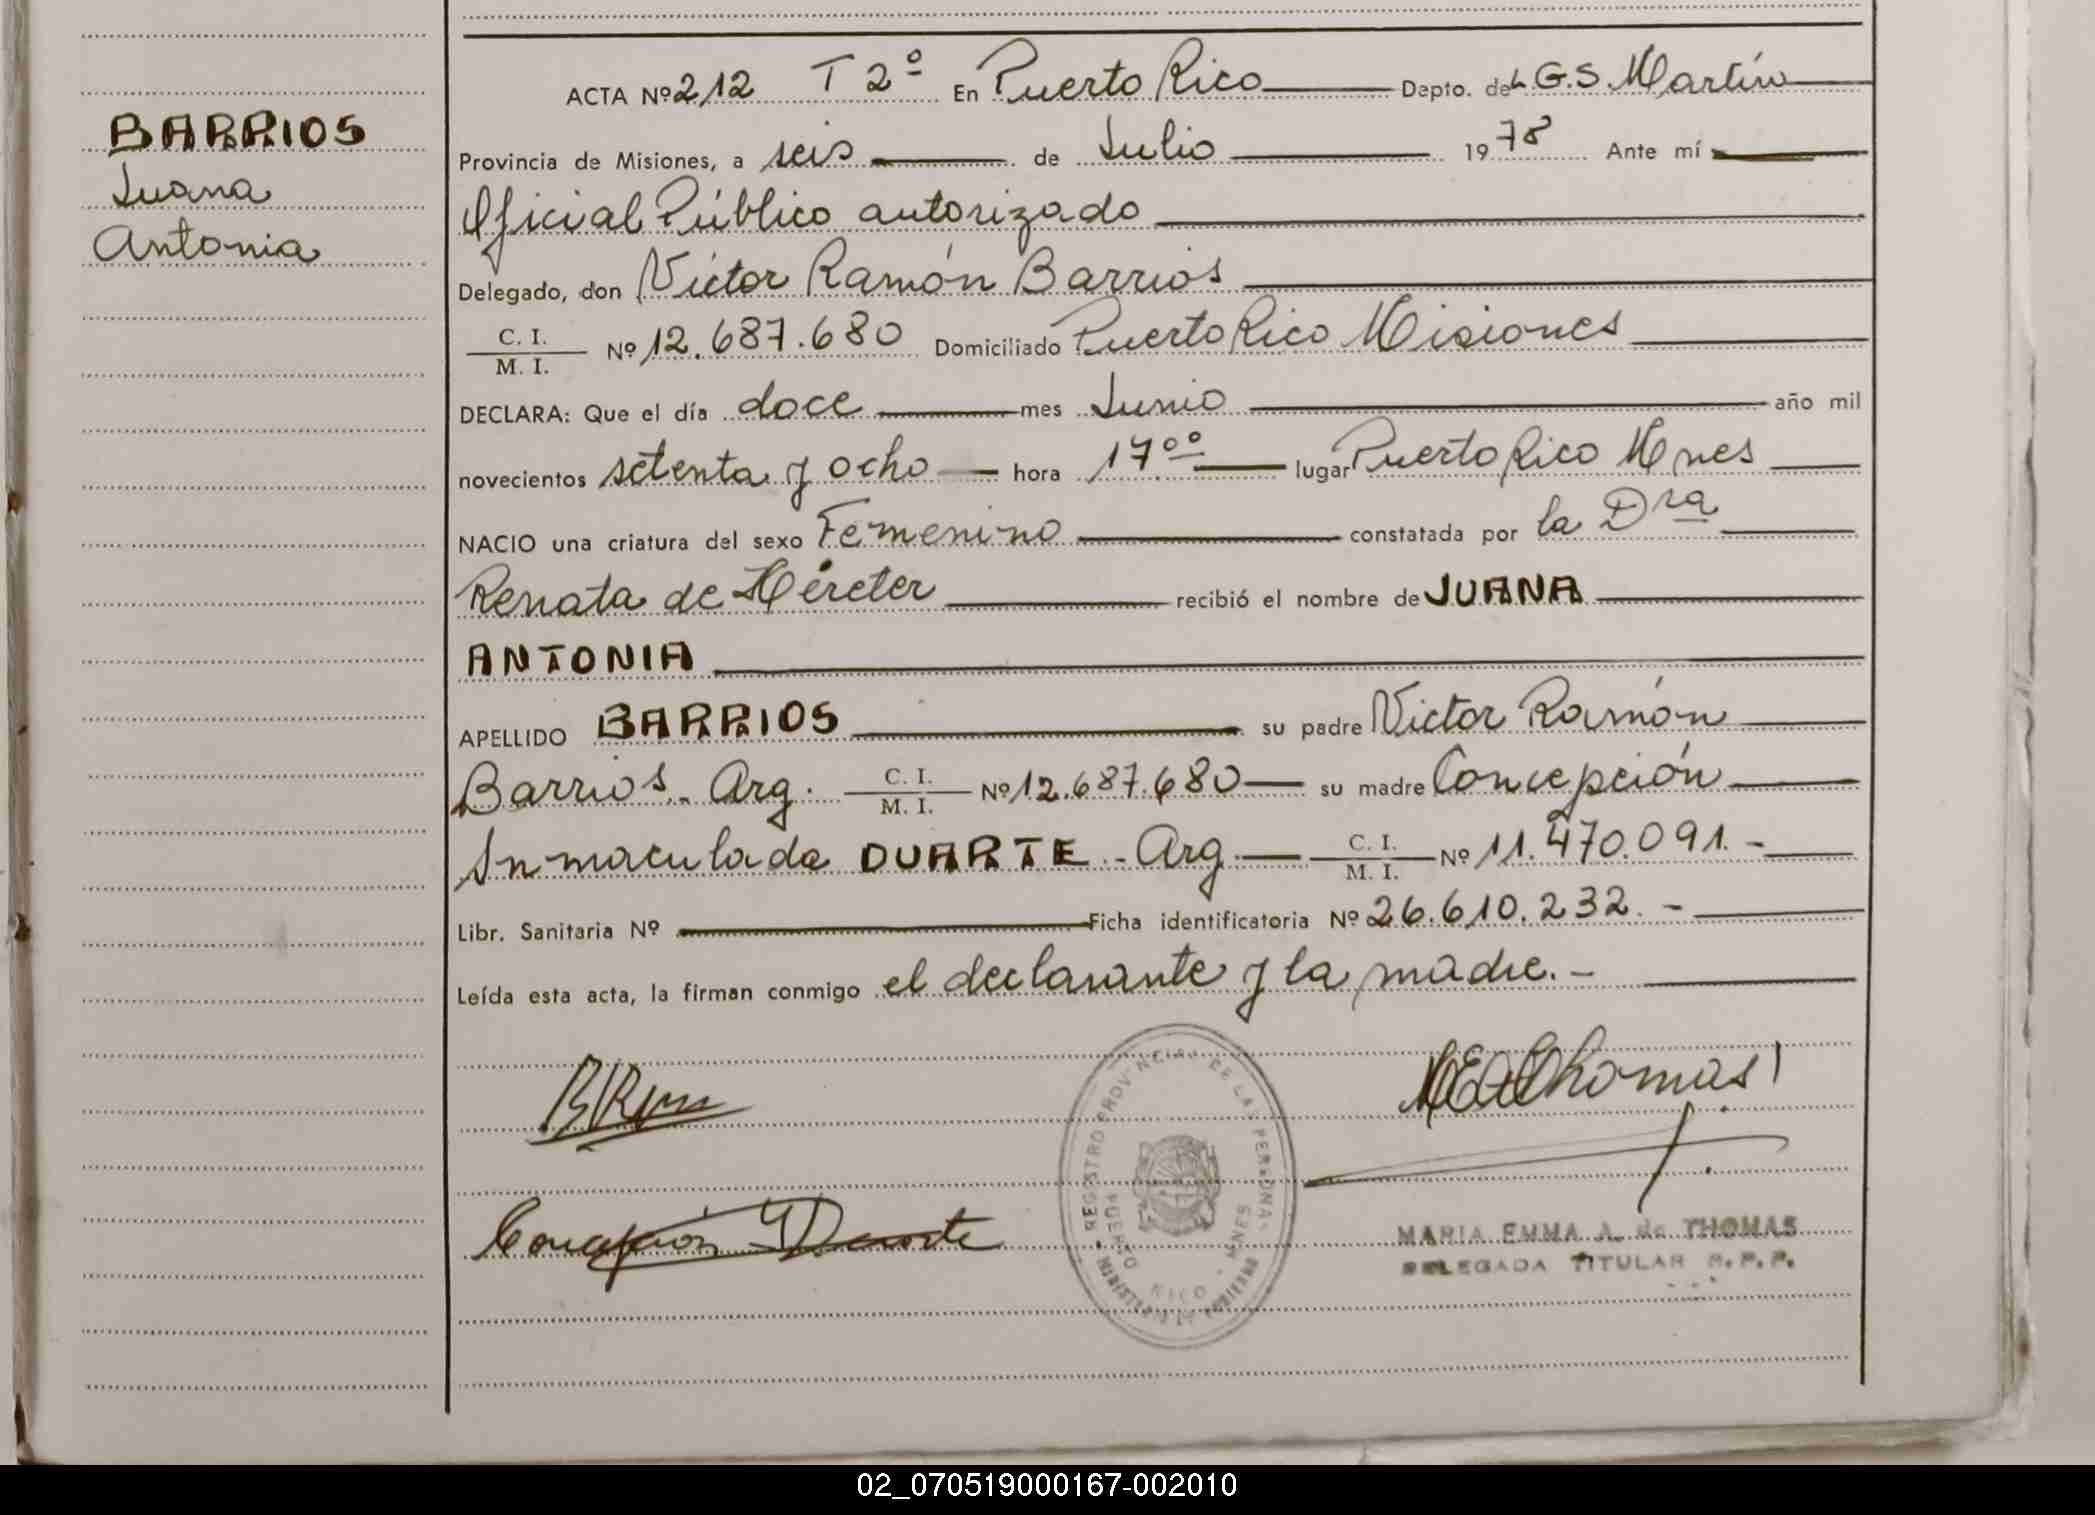 BARRIOS
Juana
Antonia
ACTA Nº 212 T 2º En Puerto Rico Depto. de L G.S. Martín
Provincia de Misiones, a seis de Julio 1978 Ante mí
Oficial Público autorizado
Delegado, don Víctor Ramón Barrios
C. I.
M. I. Nº 12.687.680 Domiciliado Puerto Rico Misiones
DECLARA: Que el día doce mes Junio año mil
novecientos setenta y ocho hora 17ºº lugar Puerto Rico Mnes
NACIO una criatura del sexo Femenino constatada por la Dra
Renata de Héreter recibió el nombre de JUANA
ANTONIA
APELLIDO BARRIOS su padre Victor Ramón
Barrios.- Arg. C. I. M. I. Nº 12.687.680 su madre Concepción
Inmaculada DUARTE.- Arg. C. I. M. I. Nº 11.470.091.-
Libr. Sanitaria Nº Ficha identificatoria Nº 26.610.232.-
Leída esta acta, la firman conmigo el declarante y la madre.-
MEAThomas
Concepción I Duarte
REGISTRO PROVINCIAL DE LAS PERSONAS
PUERTO RICO - MNES
MINISTERIO DE GOBIERNO
MARIA EMMA A. de THOMAS
DELEGADA TITULAR R. P. P.
02_070519000167-002010